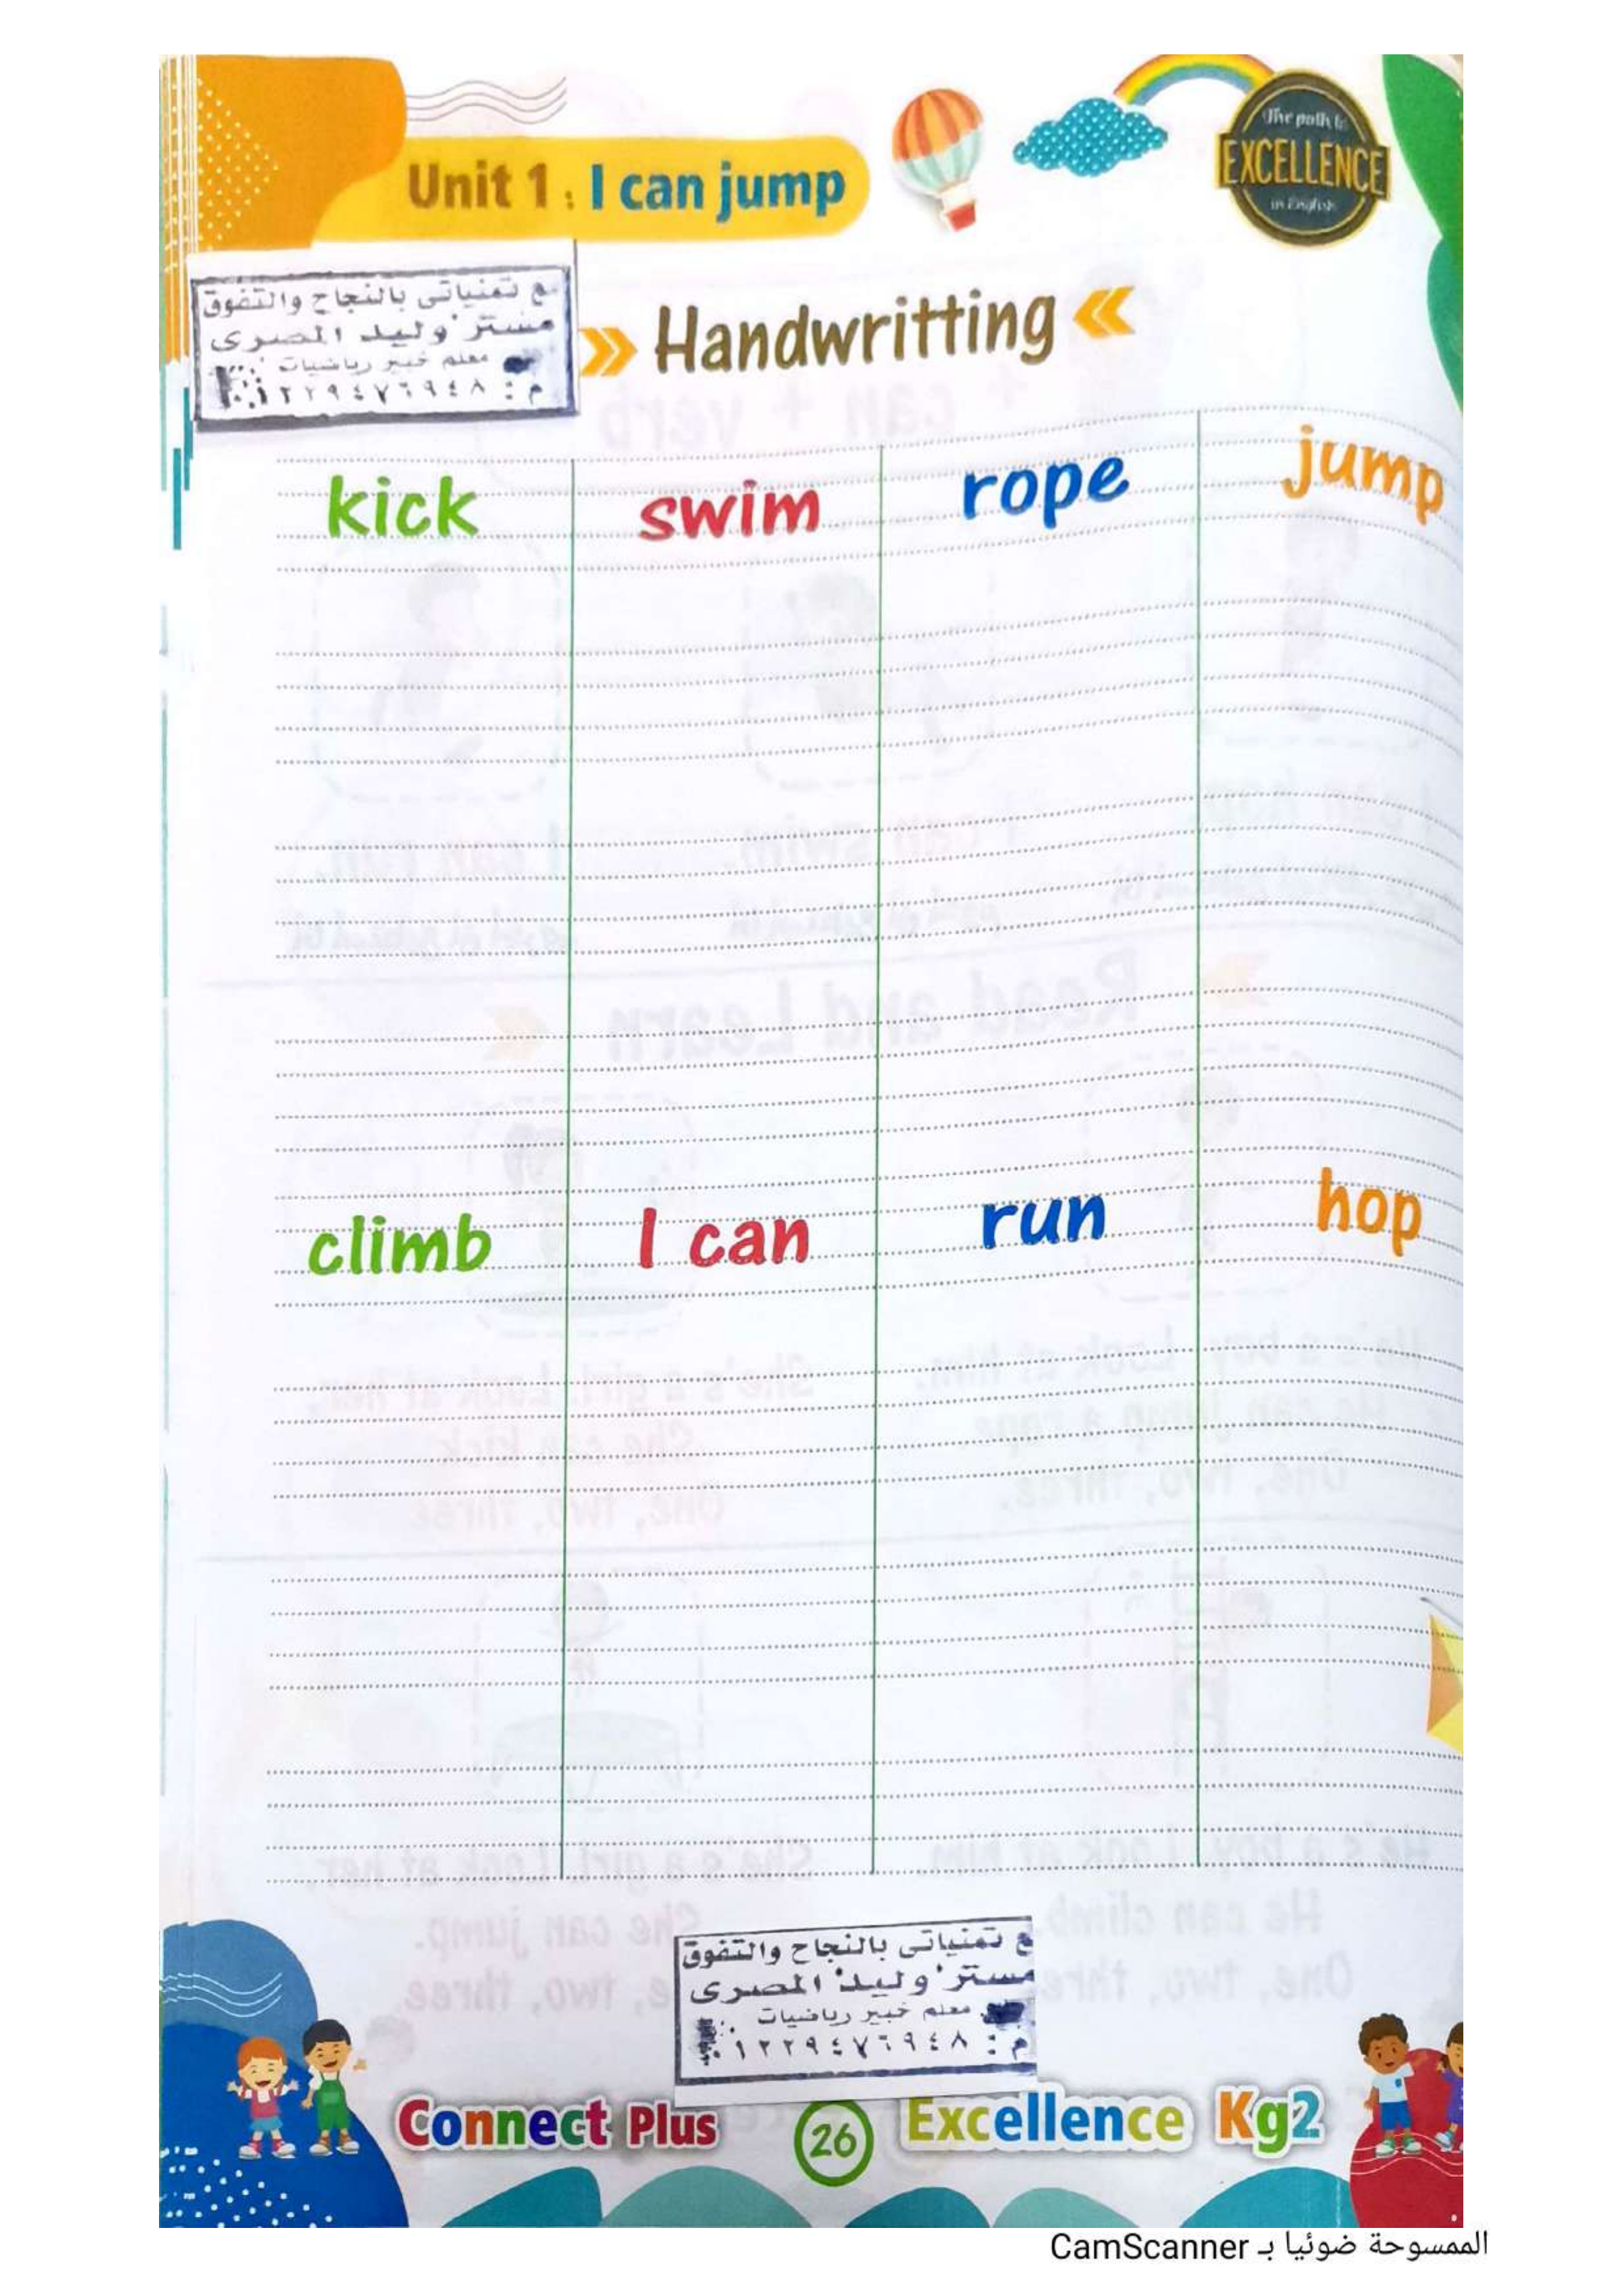 Unit 1 : I can jump
The path to
EXCELLENCE
in English
ع تمنياتى بالنجاح والتفوق
مستر وليد المصرى
معلم خبير رياضيات
م : ٠١٢٢٩٤٧٦٩٤٨
Handwritting
kick swim rope jump
climb I can run hop
ع تمنياتى بالنجاح والتفوق
مستر وليد المصرى
معلم خبير رياضيات
م : ٠١٢٢٩٤٧٦٩٤٨
Connect Plus 26 Excellence Kg2
الممسوحة ضوئيا بـ CamScanner